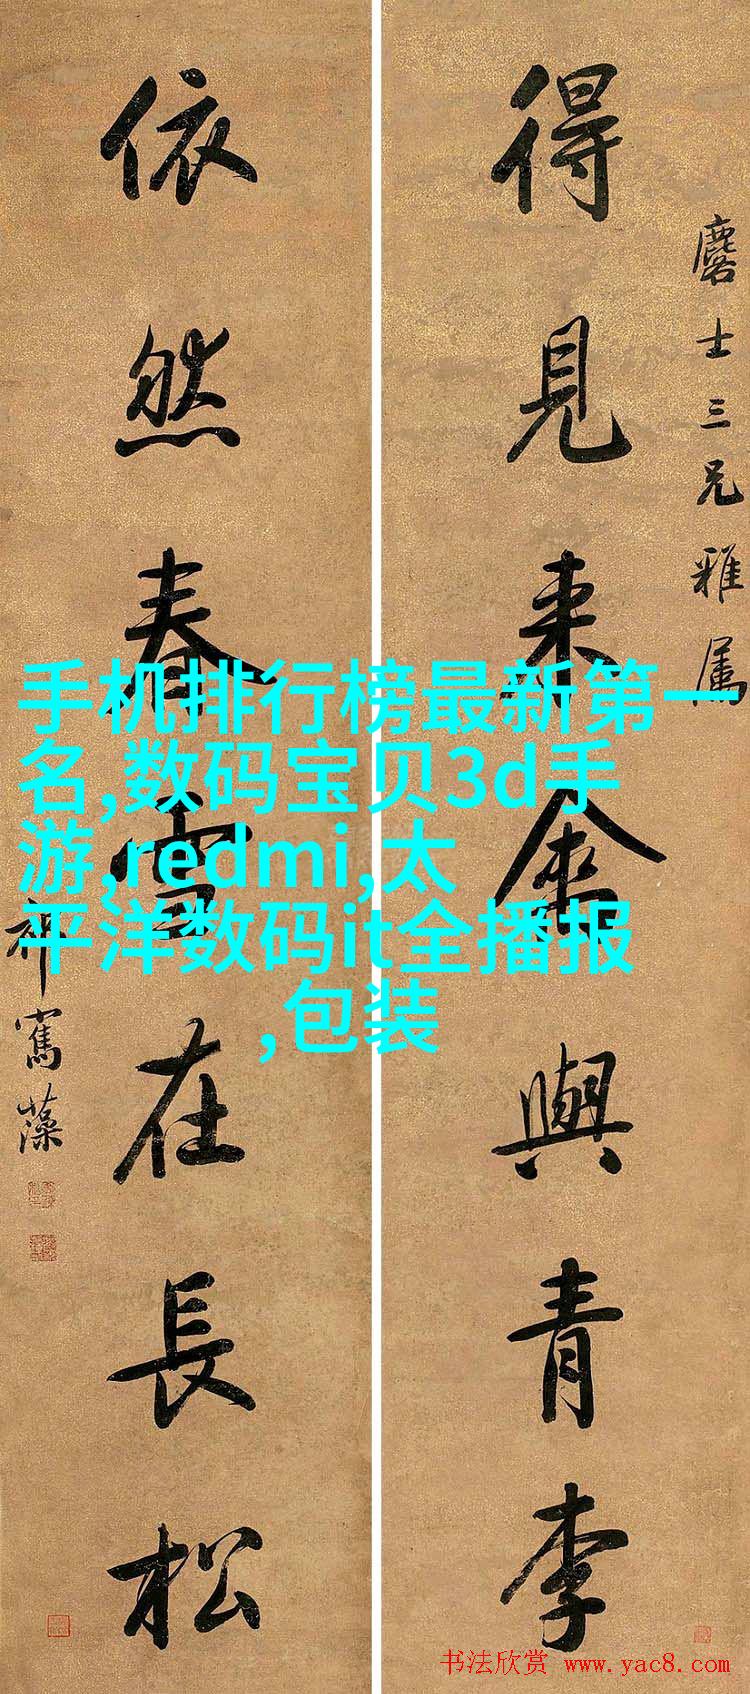 得見来禽與青李
麐士三兄雅属
依然春雪在長松
祁寯藻
手机排行榜最新第一
名,数码宝贝3d手
游,redmi,太
平洋数码it全播报
,包装
书法欣赏 www.yac8.com